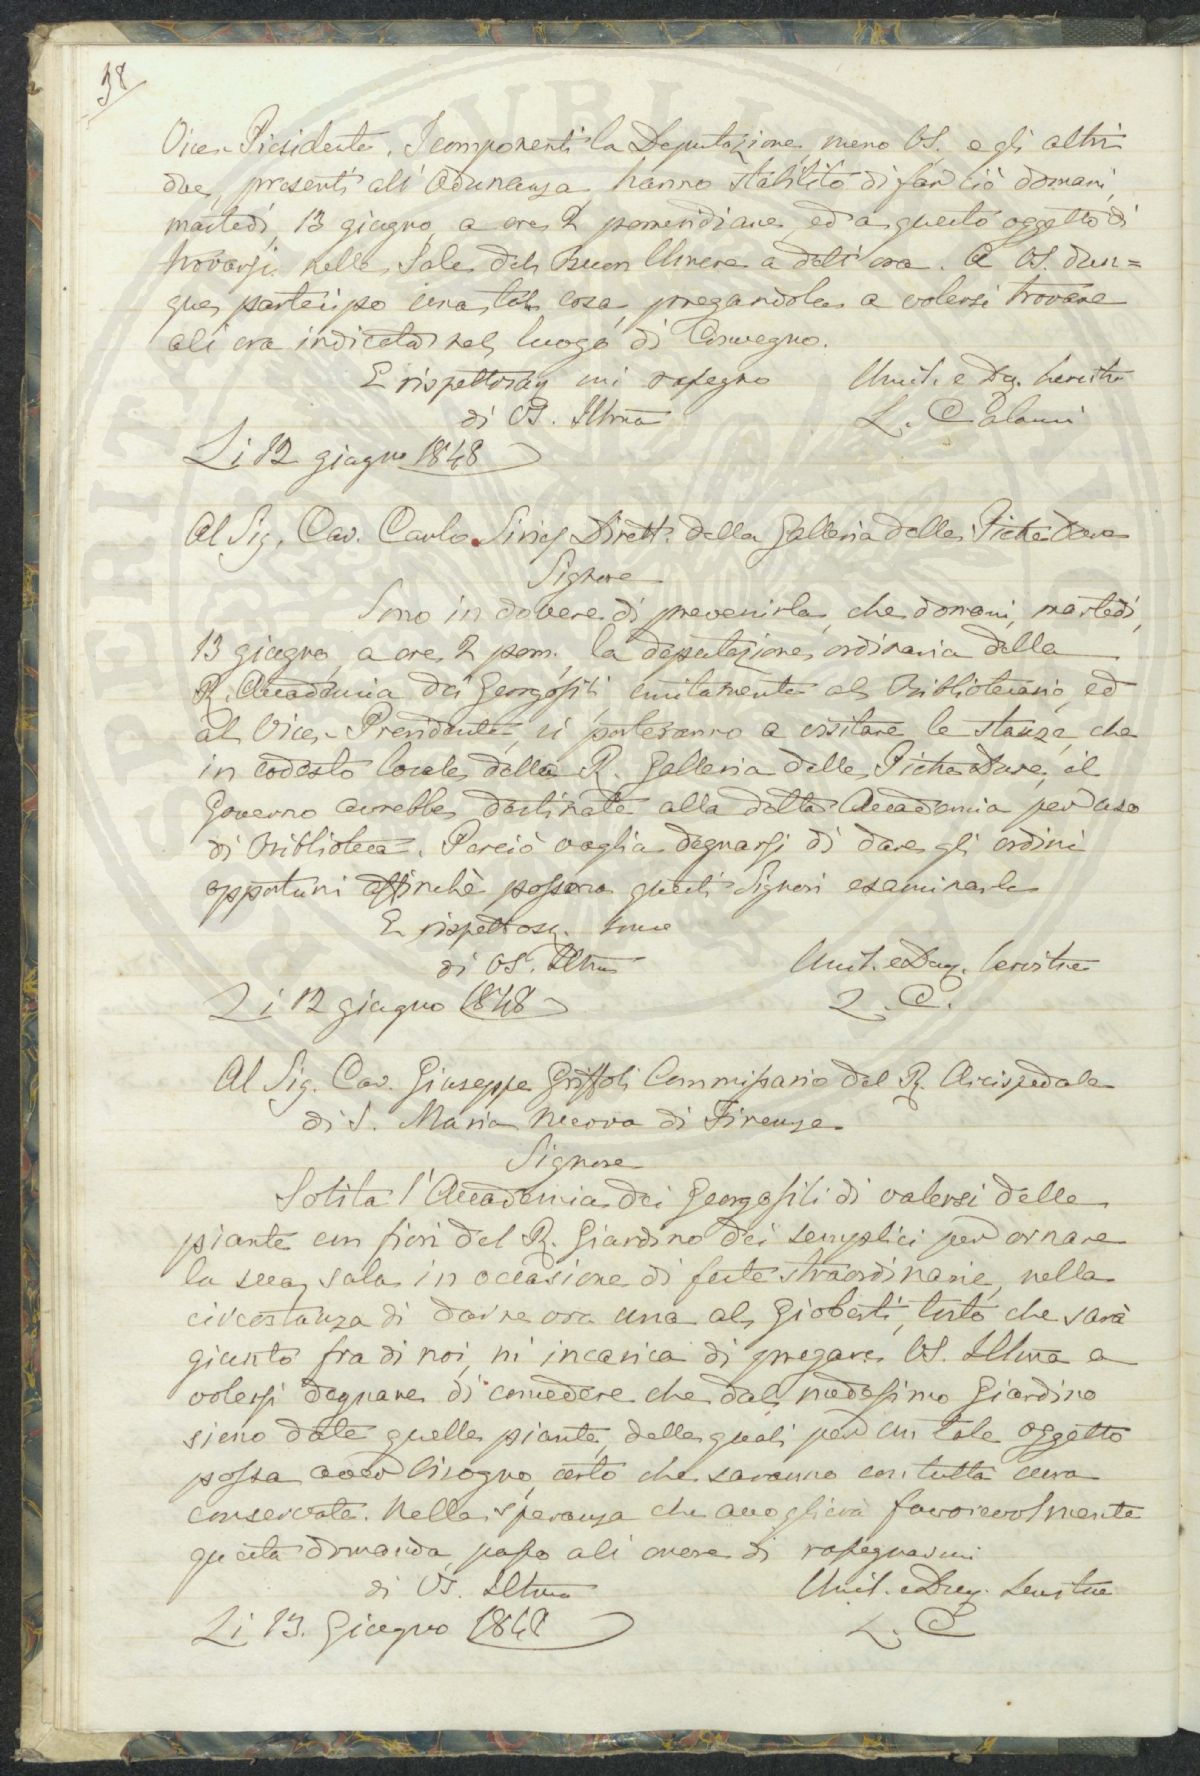 38
Vice-Presidente. I componenti la Deputazione, meno VS. e gli altri
due, presenti all'Adunanza, hanno stabilito di far ciò domani,
martedì, 13 giugno, a ore 2 pomeridiane, ed a questo oggetto di
trovarsi nelle Sale del Buon Umore a dett'ora. A VS. dun=
que partecipo una tal cosa, pregandola a volersi trovare
all'ora indicata nel luogo di Convegno.
E rispettosam mi rassegno Umil. e Dev. servitre
di VS. Illma L. Calamai
Li 12 giugno 1848
Al Sig. Cav. Carlo Siries Dirett. della Galleria delle Pietre Dure
Signore
Sono in dovere di prevenirla, che domani, martedì,
13 giugno, a ore 2 pom., la deputazione ordinaria della
R. Accademia dei Georgofili, unitamente al Bibliotecario, ed
al Vice-Presidente, si porteranno a visitare le stanze, che
in codesto locale della R. Galleria delle Pietre Dure, il
Governo avrebbe destinate alla detta Accademia per uso
di Biblioteca. Perciò voglia degnarsi di dare gli ordini
opportuni affinchè possano questi Signori esaminarle
E rispettos. sono
di VS. Illma Umil. e Dev. servitre
Li 12 giugno 1848 L. C.
Al Sig. Cav. Giuseppe Griffoli Commissario del R. Arcispedale
di S. Maria Nuova di Firenze
Signore
Solita l'Accademia dei Georgofili di valersi delle
piante con fiori del R. Giardino dei semplici per ornare
la sua sala in occasione di feste straordinarie, nella
circostanza di darne ora una al Gioberti, tosto che sarà
giunto fra di noi, m'incarica di pregare VS. Illma a
volersi degnare di concedere che dal medesimo Giardino
sieno date quelle piante, delle quali per un tale oggetto
possa aver bisogno, certo che saranno con tutta cura
conservate. Nella speranza che accoglierà favorevolmente
questa domanda, passo all'onore di rassegnarmi
di VS. Illma Umil. e Dev. servitre
Li 13. Giugno 1848 L. C